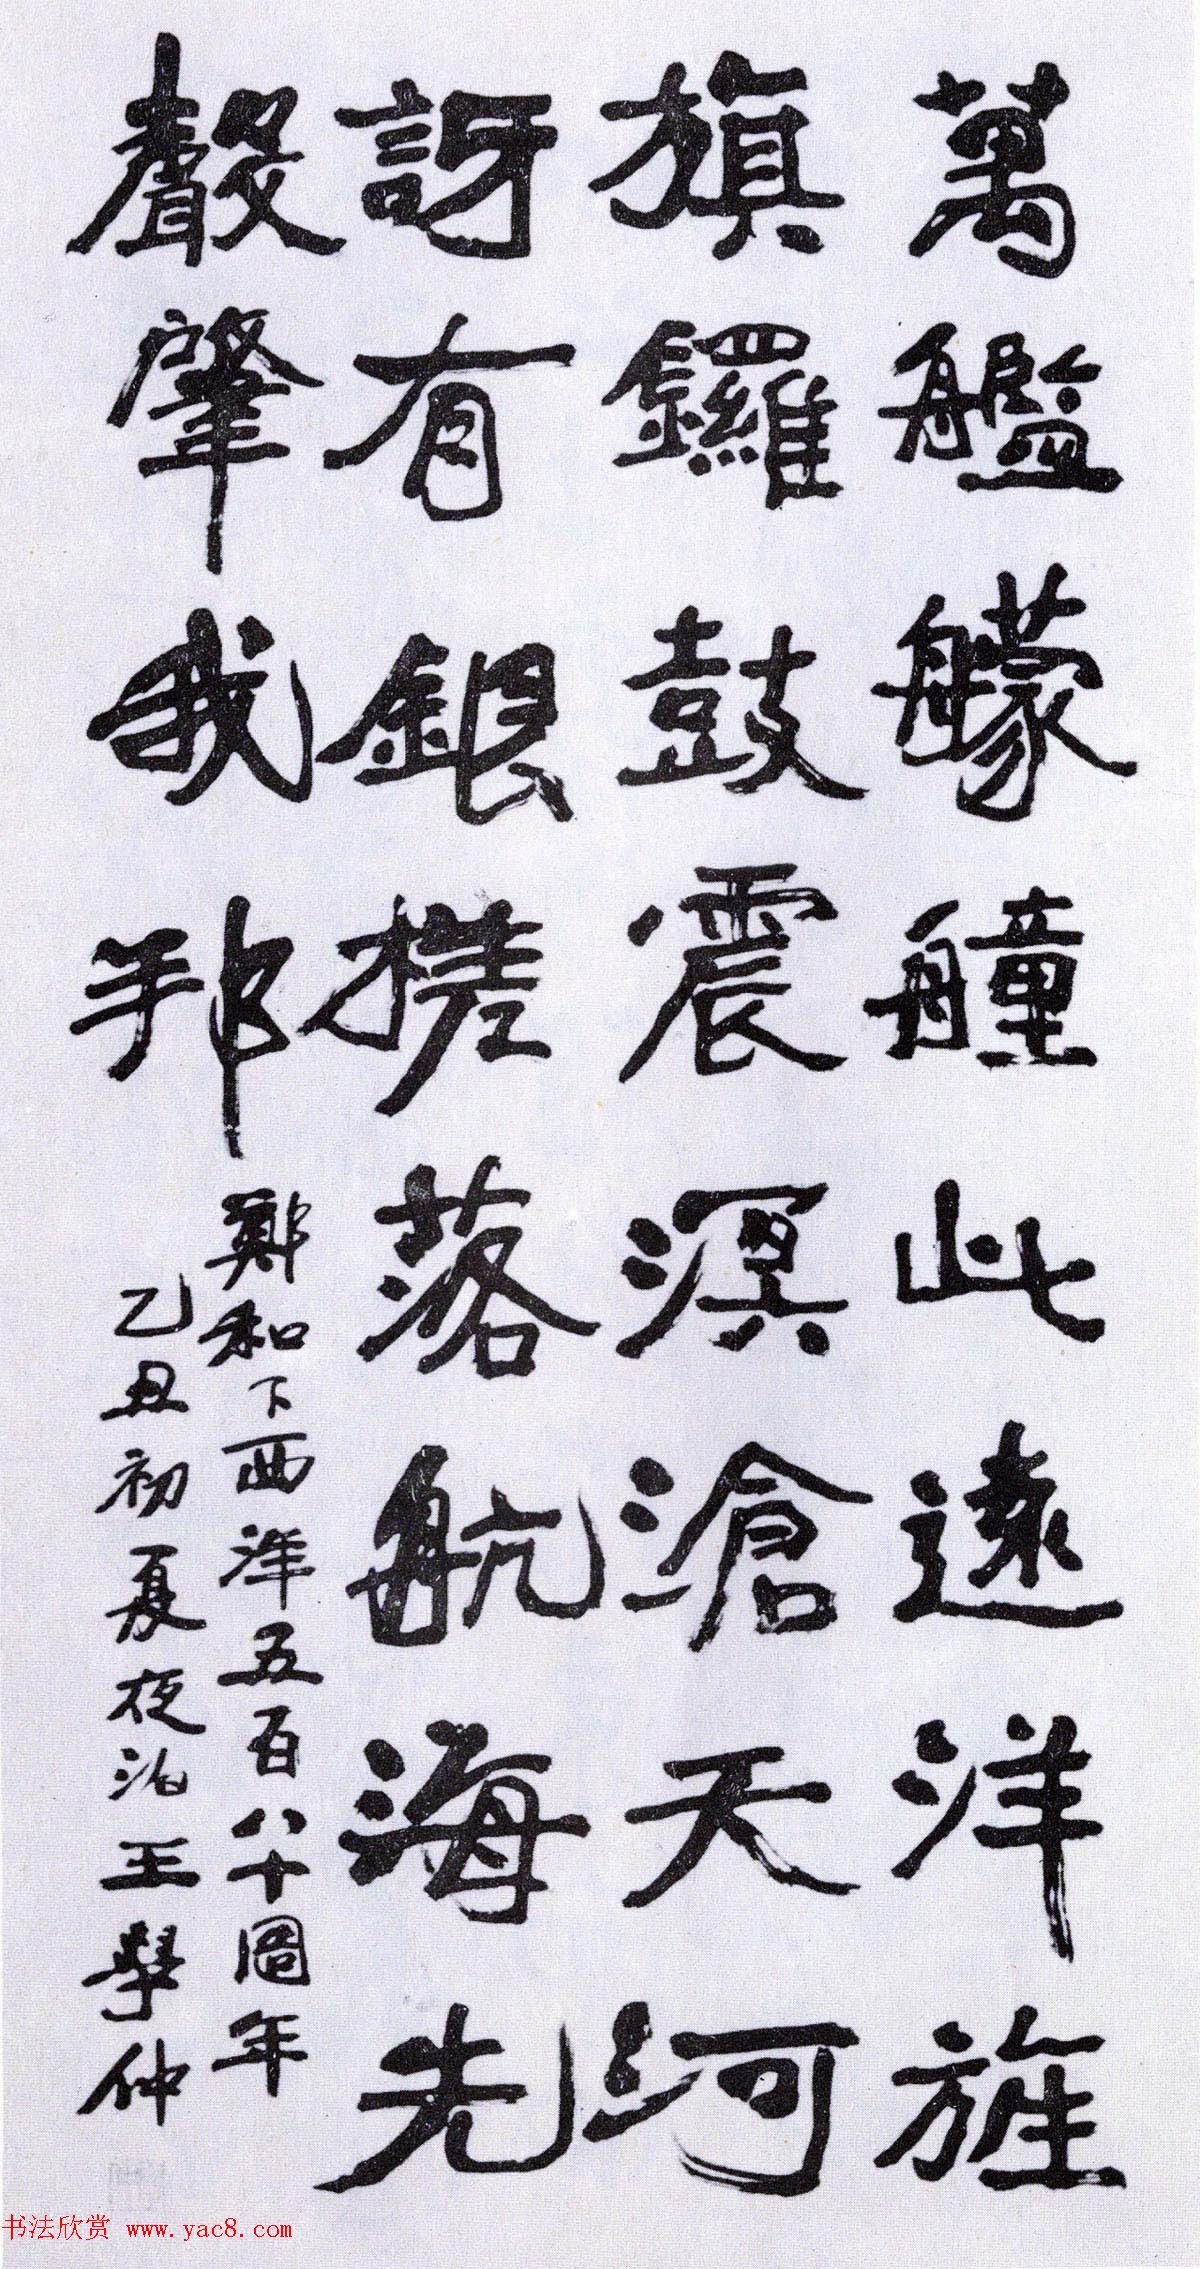 萬艦艨艟此遠洋旌
旗鑼鼓震溟滄天河
訝有銀槎落航海先
聲肇我邦
鄭和下西洋五百八十周年
乙丑初夏夜泊王學仲
书法欣赏 www.yac8.com